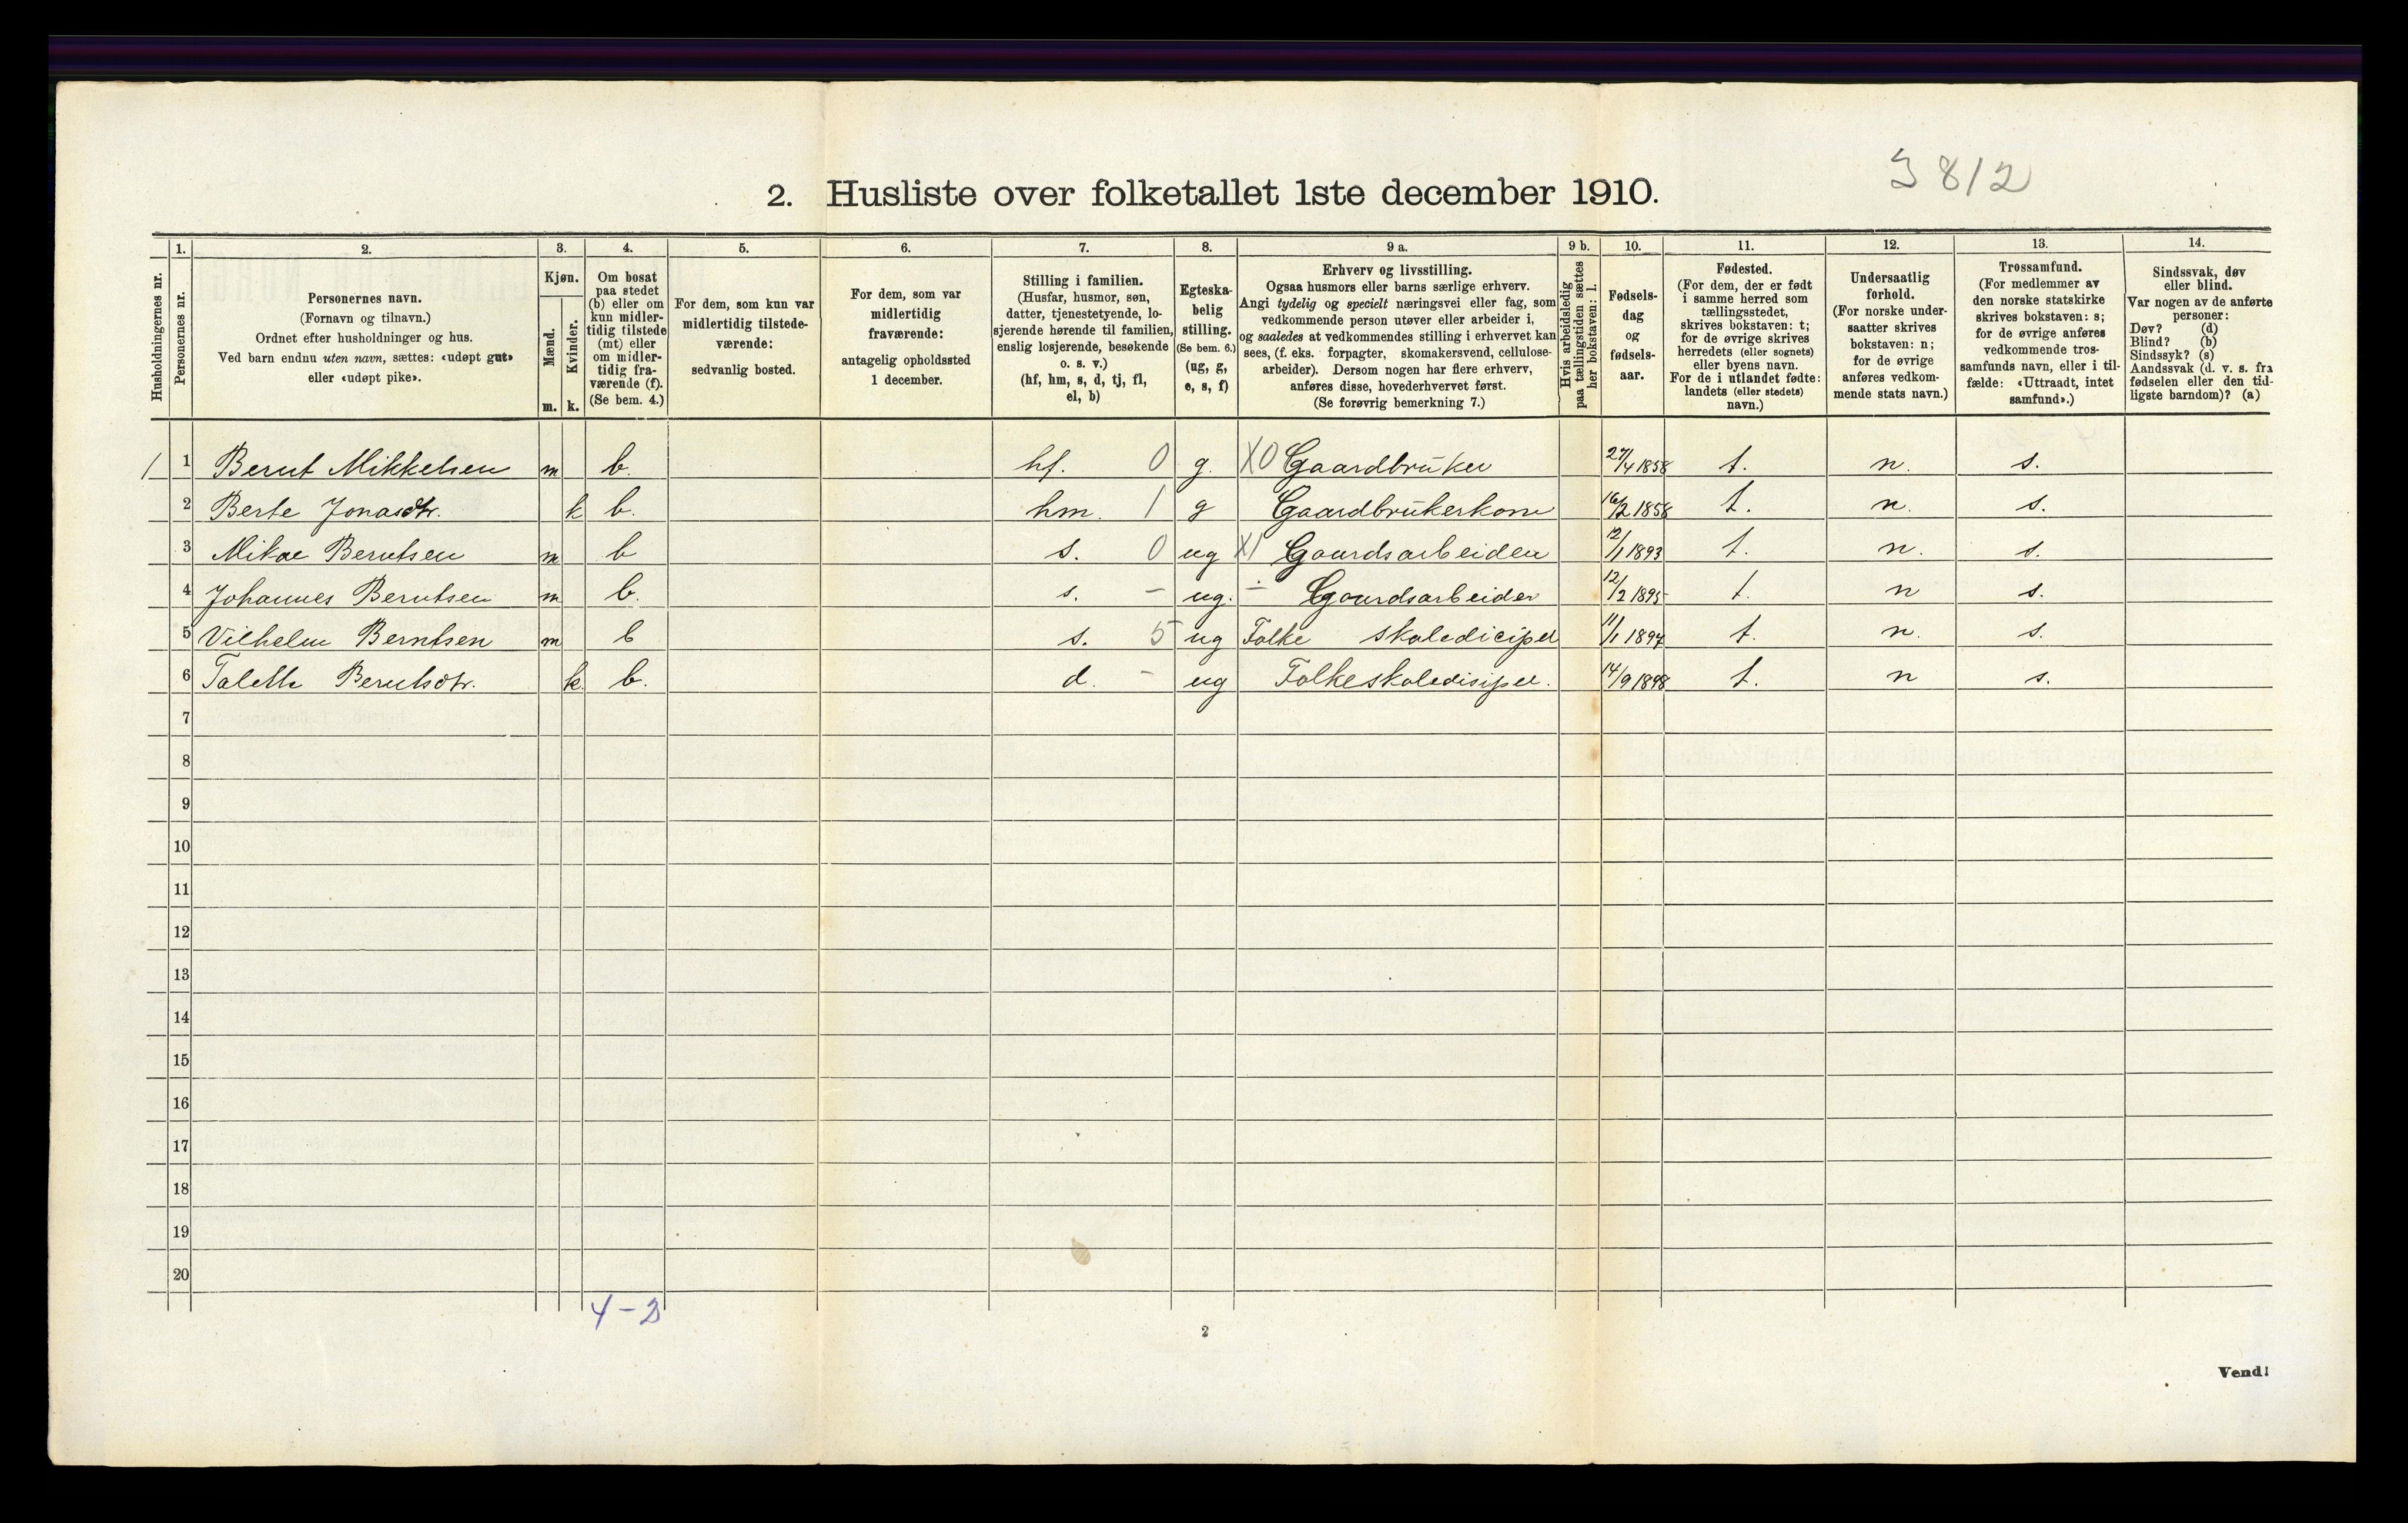 3812
2. Husliste over folketallet 1ste december 1910.
Husholdningernes nr.
1.
Personernes nr.
2.
Personernes navn.
(Fornavn og tilnavn.)
Ordnet efter husholdninger og hus.
Ved barn endnu uten navn, sættes: «udøpt gut»
eller «udøpt pike».
3.
Kjøn.
Mænd.
Kvinder.
m. k.
4.
Om bosat
paa stedet
(b) eller om
kun midler-
tidig tilstede
(mt) eller
om midler-
tidig fra-
værende (f).
(Se bem. 4.)
5.
For dem, som kun var
midlertidig tilstede-
værende:
sedvanlig bosted.
6.
For dem, som var
midlertidig
fraværende:
antagelig opholdssted
1 december.
7.
Stilling i familien.
(Husfar, husmor, søn,
datter, tjenestetyende, lo-
sjerende hørende til familien,
enslig losjerende, besøkende
o. s. v.)
(hf, hm, s, d, tj, fl,
el, b)
8.
Egteska-
belig
stilling.
(Se bem. 6.)
(ug, g,
e, s, f)
9 a.
Erhverv og livsstilling.
Ogsaa husmors eller barns særlige erhverv.
Angi tydelig og specielt næringsvei eller fag, som
vedkommende person utøver eller arbeider i,
og saaledes at vedkommendes stilling i erhvervet kan
sees, (f. eks. forpagter, skomakersvend, cellulose-
arbeider). Dersom nogen har flere erhverv,
anføres disse, hovederhvervet først.
(Se forøvrig bemerkning 7.)
9 b.
Hvis arbeidsledig
paa tællingstiden sættes
her bokstaven: l.
10.
Fødsels-
dag
og
fødsels-
aar.
11.
Fødested.
(For dem, der er født
i samme herred som
tællingsstedet,
skrives bokstaven: t;
for de øvrige skrives
herredets (eller sognets)
eller byens navn.
For de i utlandet fødte:
landets (eller stedets)
navn.)
12.
Undersaatlig
forhold.
(For norske under-
saatter skrives
bokstaven: n;
for de øvrige
anføres vedkom-
mende stats navn.)
13.
Trossamfund.
(For medlemmer av
den norske statskirke
skrives bokstaven: s;
for de øvrige anføres
vedkommende tros-
samfunds navn, eller i til-
fælde: «Uttraadt, intet
samfund».)
14.
Sindssvak, døv
eller blind.
Var nogen av de anførte
personer:
Døv? (d)
Blind? (b)
Sindssyk? (s)
Aandssvak (d. v. s. fra
fødselen eller den tid-
ligste barndom)? (a)
1 1 Bernt Mikkelsen m b. hf. 0 g. X0 Gaardbruker 27/4 1858 t. n. s.
2 Berte Jonasdtr. k b. hm. 1 g Gaardbrukerkone 16/2 1858 t. n. s.
3 Mikae Berntsen m b s. 0 ug X1 Gaardsarbeider 12/1 1893 t. n. s.
4 Johannes Berntsen m b. s. – ug. ÷ Gaardsarbeider 12/2 1895 t. n s.
5 Vilhelm Berntsen m b s. 5 ug Folke skoledicipel 11/1 1897 t. n. s.
6 Talette Berntsdtr. k. b. d. – ug Folkeskoledisipel. 14/9 1898 t. n s.
7
8
9
10
11
12
13
14
15
16
17
18
19
20
4–2
2
Vend!